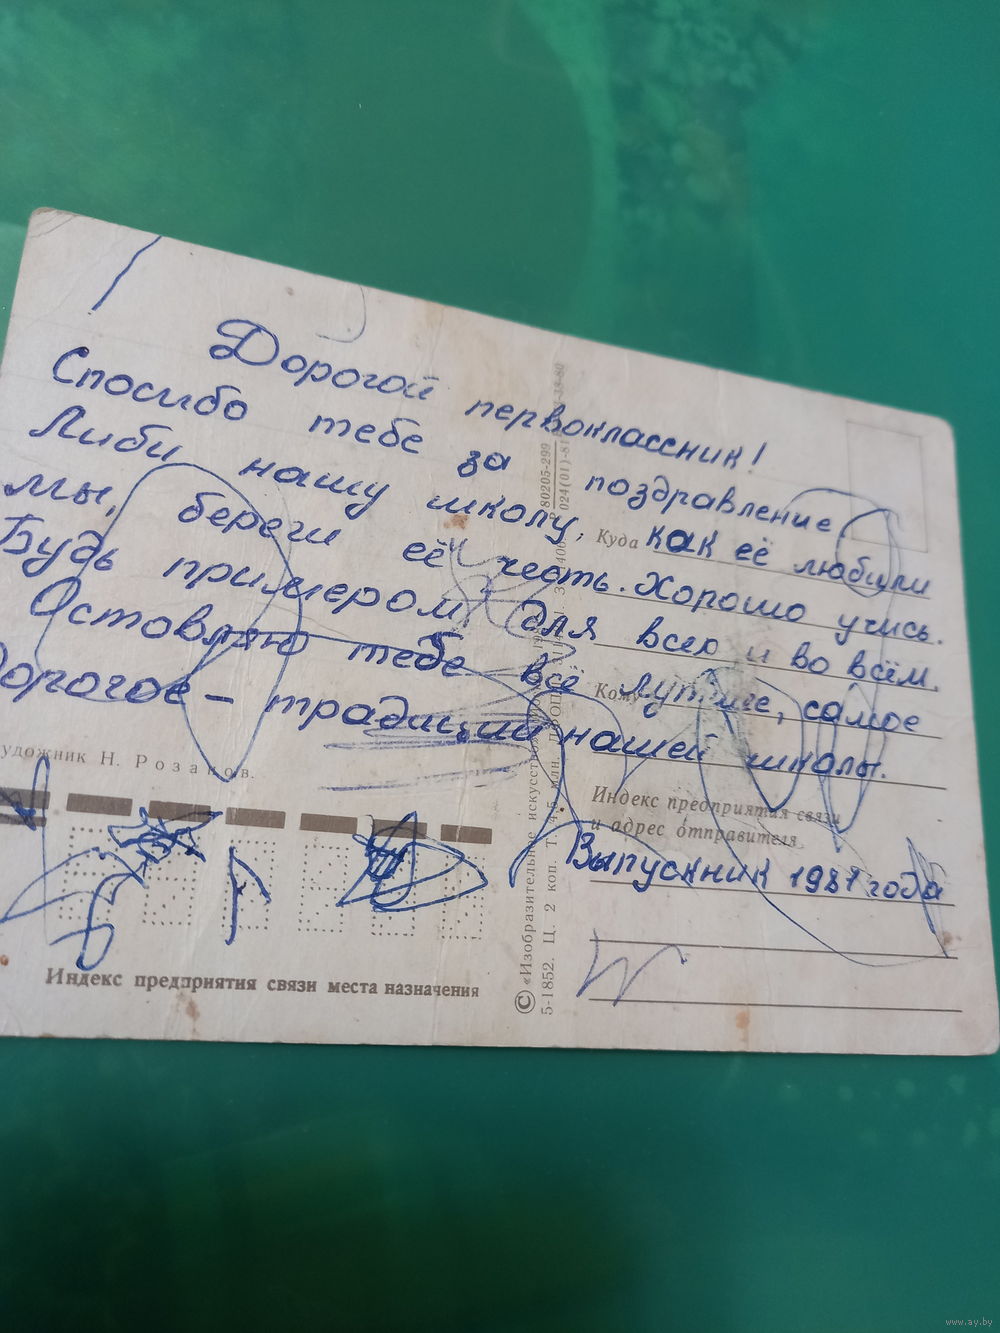 Дорогой первоклассник!
Спосибо тебе за поздравление
Люби нашу школу, как её любили
мы, береги её честь. Хорошо учись.
Будь примером для всех и во всём.
Оставляю тебе всё лутшее, самое
дорогое – традиции нашей школы.
Выпускник 1981 года
Куда
Кому
Индекс предприятия связи
и адрес отправителя
художник Н. Розанов.
Индекс предприятия связи места назначения
© «Изобразительное искусство»
5-1852. Ц. 2 коп. Т. 4,5 млн.
80205-299
024(01)-81
www.ay.by